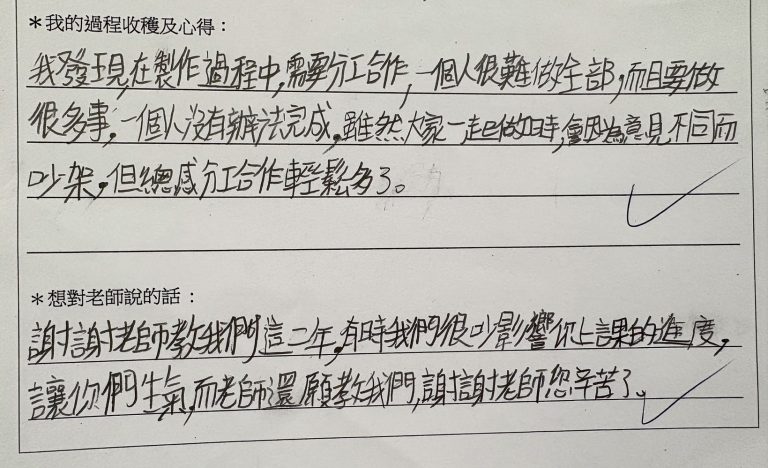 ＊我的過程收穫及心得：
我發現,在製作過程中,需要分工合作,一個人很難做全部,而且要做
很多事,一個人沒有辦法完成,雖然大家一起做時,會因為意見不同而
吵架,但總感分工合作輕鬆多了。
＊想對老師說的話：
謝謝老師教我們這二年,有時我們很吵影響你上課的進度,
讓你們生氣,而老師還願教我們,謝謝老師您辛苦了。